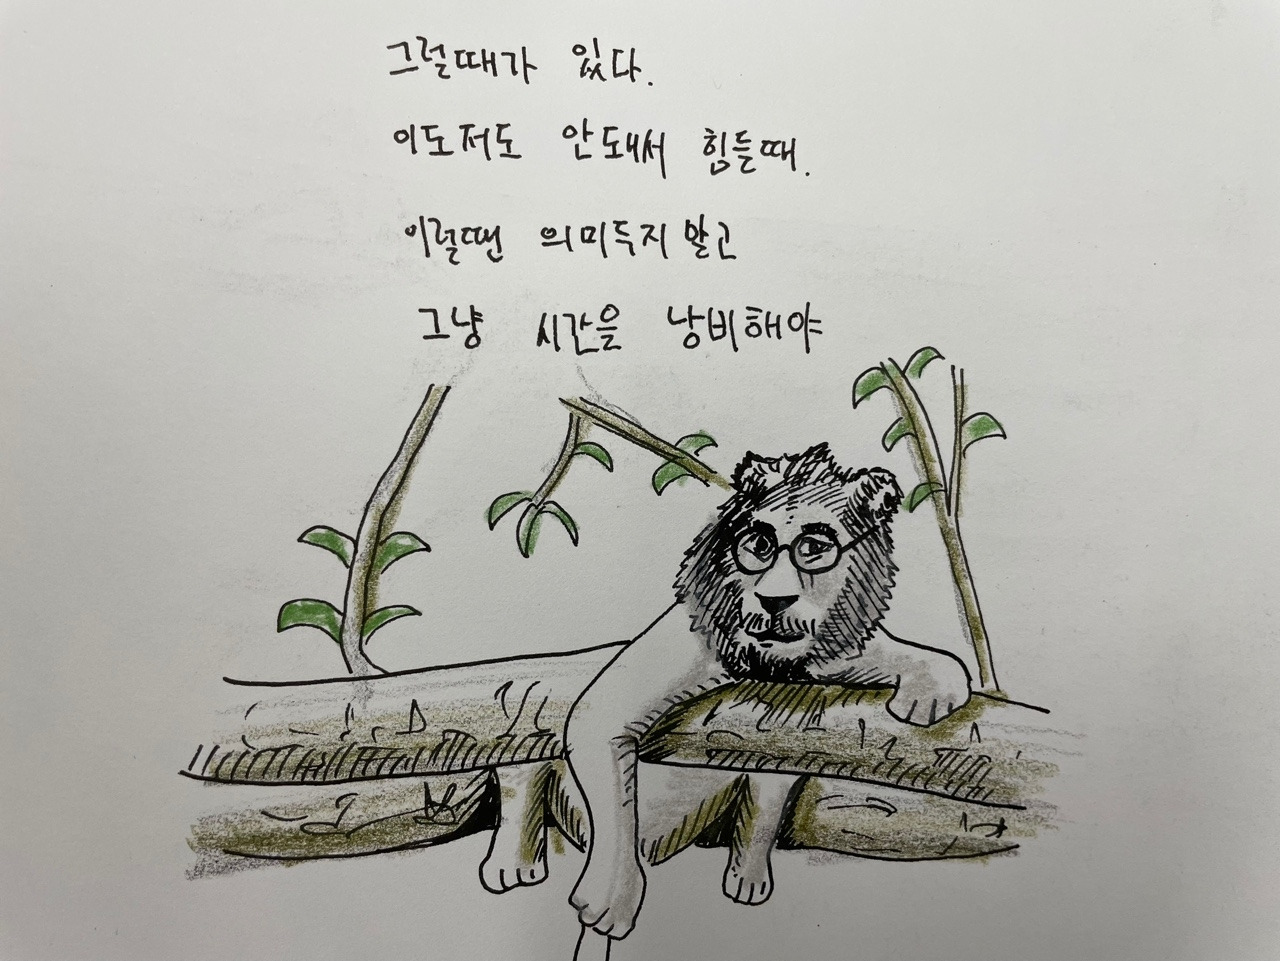 그럴때가 있다.
이도저도 안돼서 힘들때.
이럴땐 의미두지 말고
그냥 시간을 낭비해야